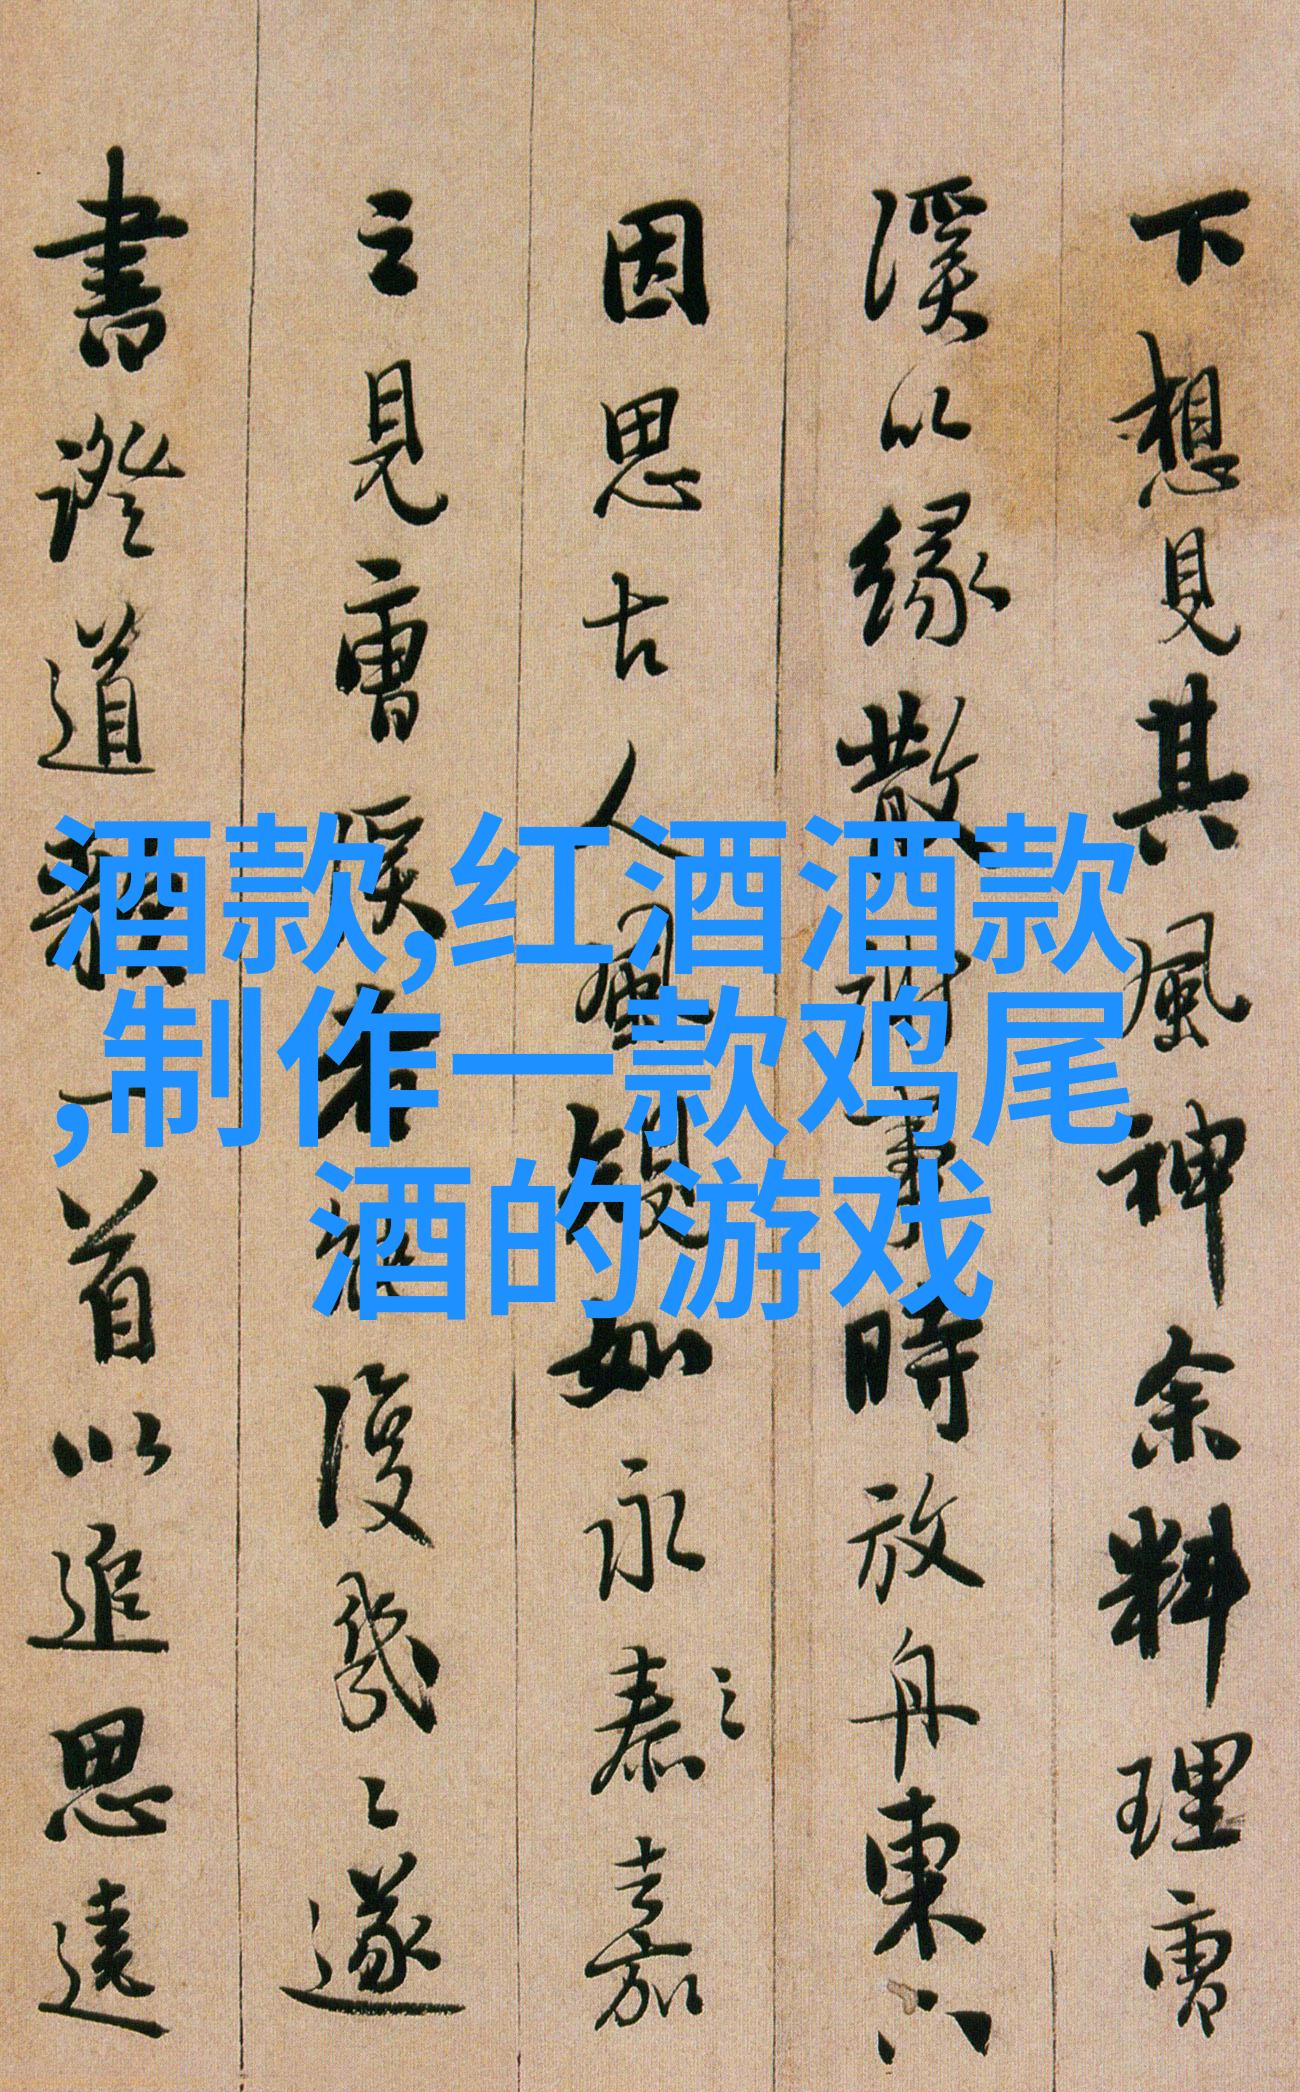 酒款,红酒酒款
,制作一款鸡尾
酒的游戏
下想見其風神余料理霅
溪以緣散事時放舟東
因思古人風如永泰之嘉
之見霅溪者復幾遂
書證道歌一首以追思遠